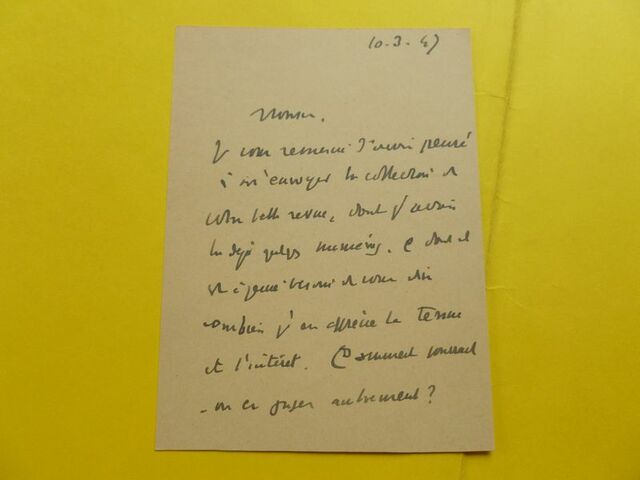 10.3.47
Monsieur,
Je vous remercie d'avoir pensé
à m'envoyer la collection de
votre belle revue, dont j'avais
lu déjà quelques numéros. Et
est à peine besoin de vous dire
combien j'en apprécie la tenue
et l'intérêt. Comment pourrait
-on en juger autrement?